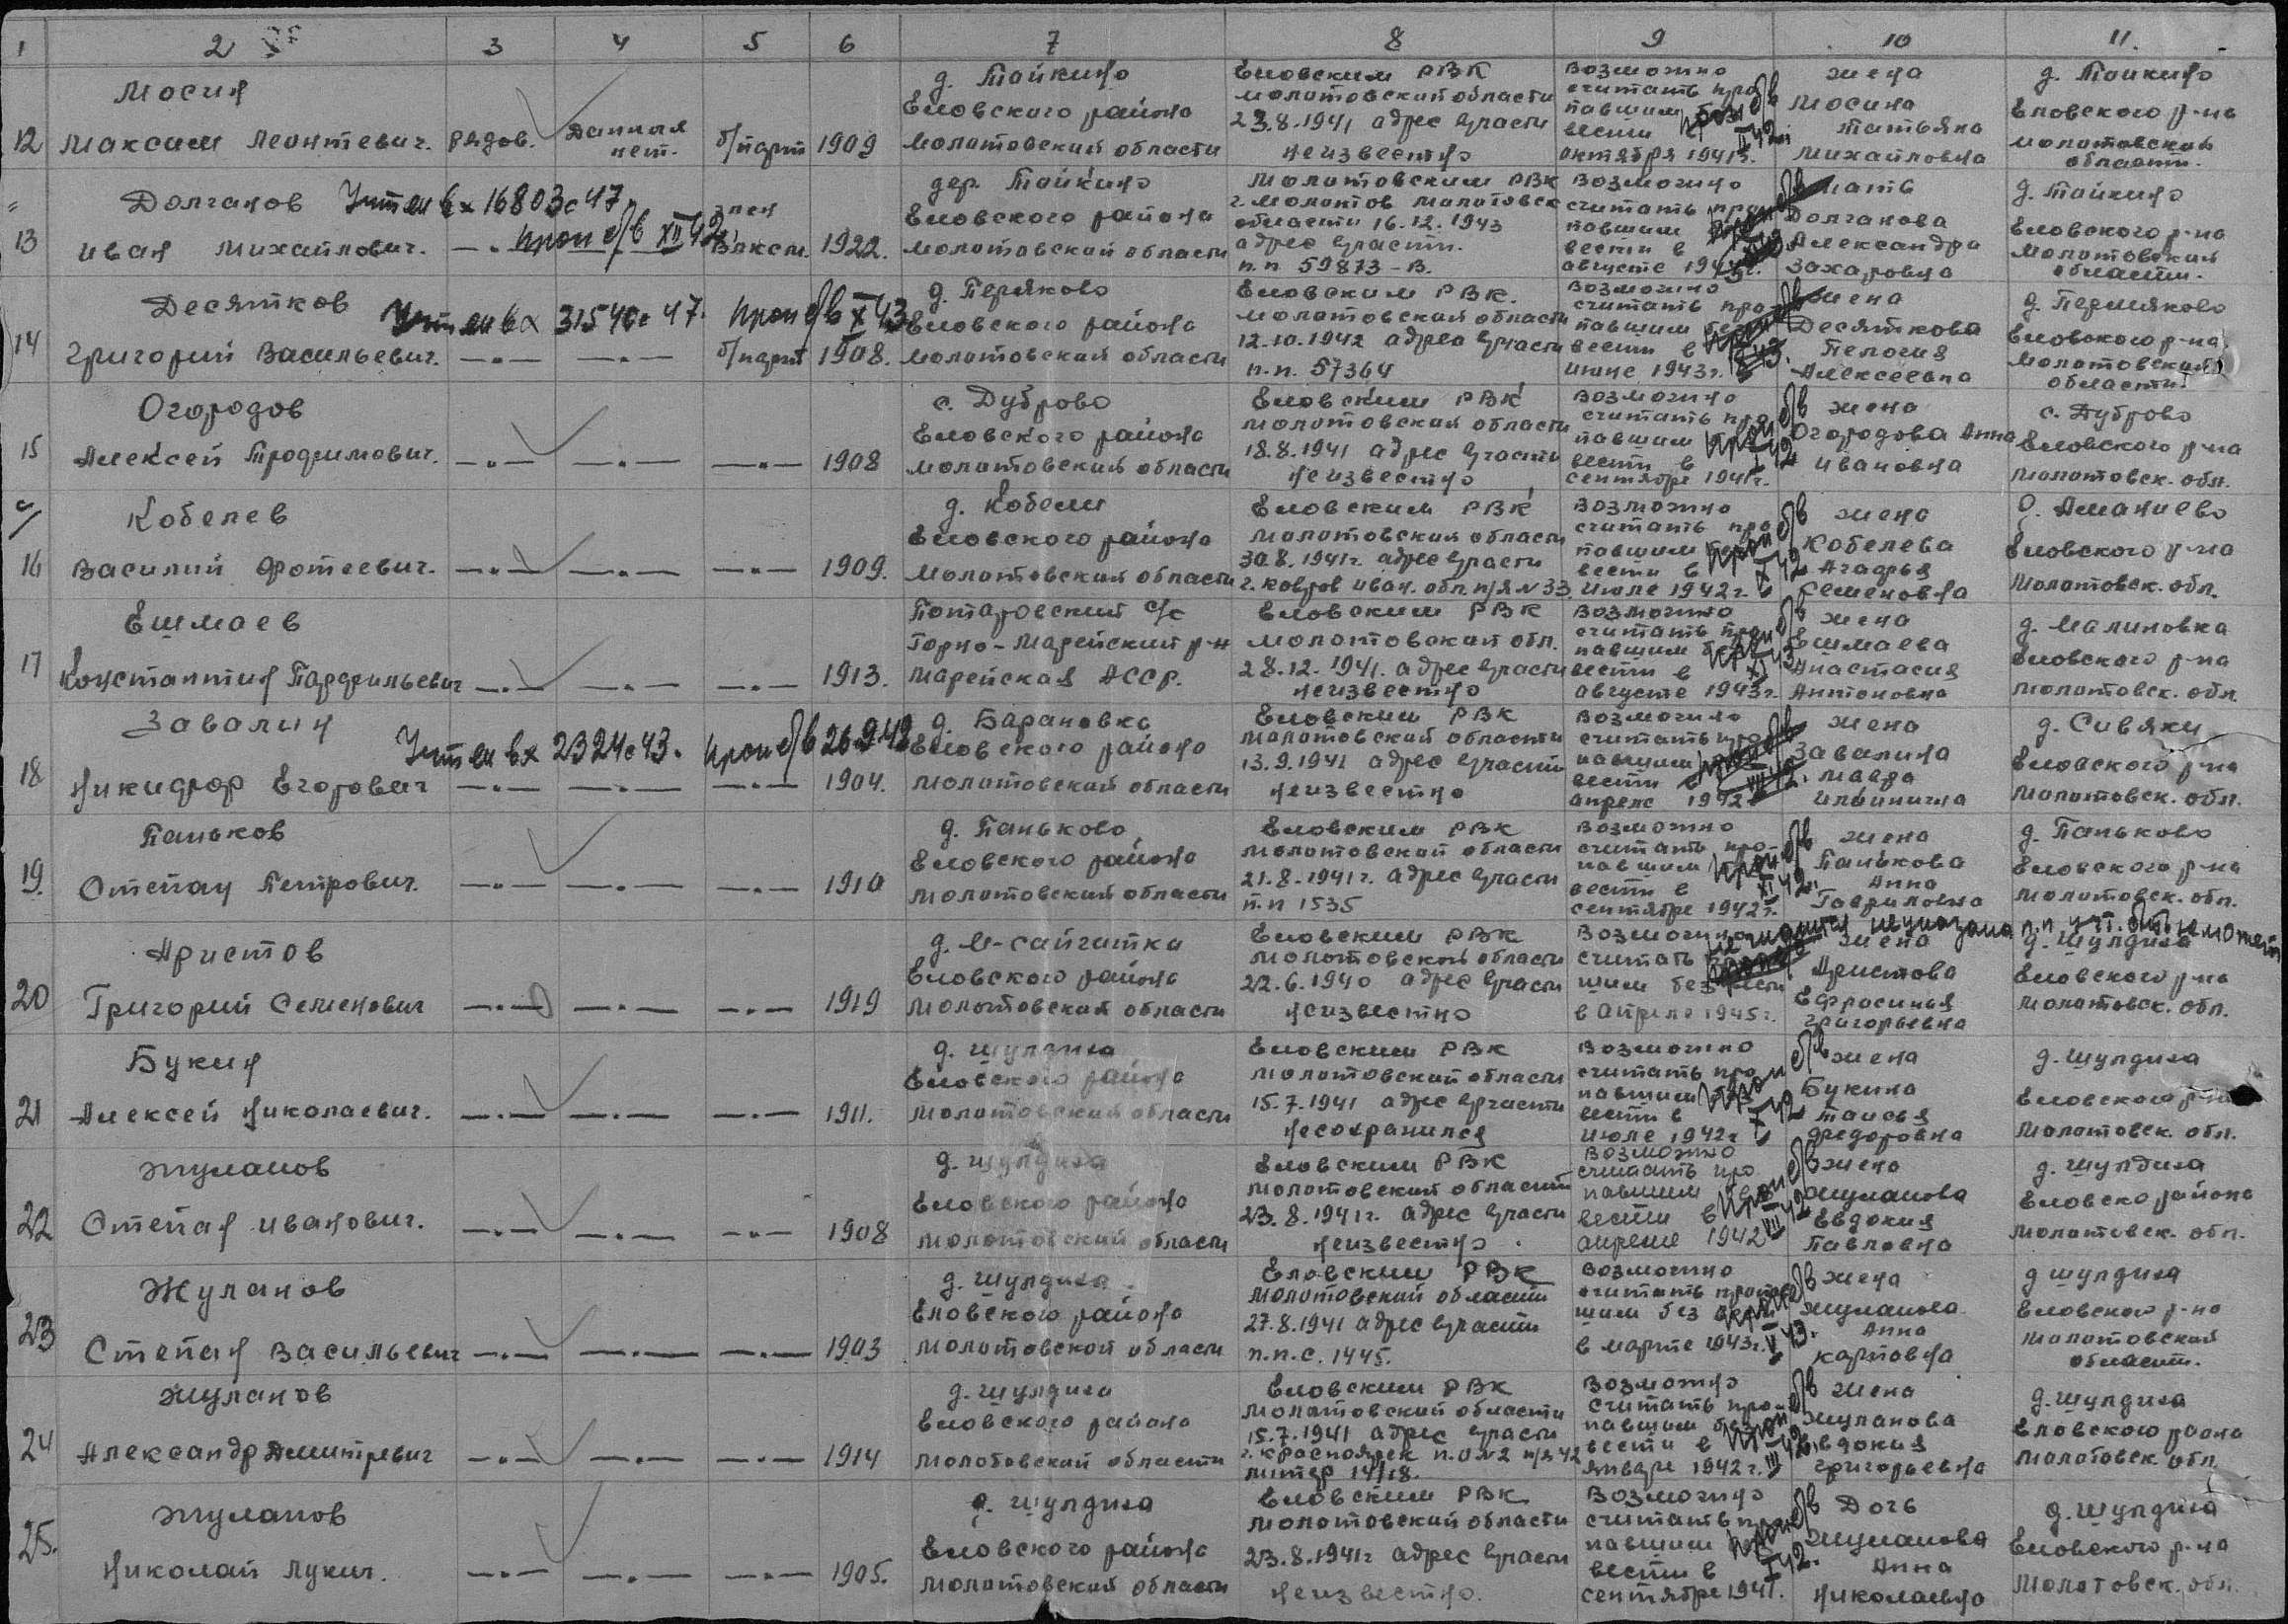 1 2 3 4 5 6 7 8 9 10 11.
12 Мосин
Максим Леонтевич. рядов. Данных нет. б/парт 1909
д. Тойкино
Еловского района
Молотовский области
Еловским РВК
Молотовский области
23.8.1941 адрес в/части
неизвестно
Возможно
считать про
павшим без
вести
октября 1941г.
жена
Мосина
Татьяна
Михайловна
д. Тойкино
Еловского р-на
Молотовский
области.
13 Долганов Учтен вх 16803с 47.
проп б/в XII 42
Иван Михайлович. —·— член ВЛКСМ. 1922.
дер. Тойкино
Еловского района
Молотовский области
Молотовским РВК
г. Молотов Молотовск
области 16.12.1943
адрес в/части.
п.п 59873-В.
Возможно
считать про
павшим
вести в
августе
мать
Долганова
Александра
Захаровна
д. Тойкино
Еловского р-на
Молотовский
области.
14 Десятков Учтен вх 31540с 47. проп б/в X 43
Григорий Васильевич. —·— —·— б/парт 1908.
д.
Еловского района
Молотовский области
Еловским РВК.
Молотовский области
12.10.1942 адрес в/части
п.п. 57364
Возможно
считать про-
павшим без
вести в
июне 1943г.
жена
Десяткова
Пелогия
Алексеевна
д. Пермяково
Еловского р-на
Молотовский
области.
15 Огородов
Алексей Трофимович. —·— —·— —·— 1908
с. Дуброво
Еловского района
Молотовский области
Еловским РВК
Молотовский области
18.8.1941 адрес в/части
неизвестно
Возможно
считать про
павшим
вести в
сентябре 1941г.
жена
Огородова Анна
Ивановна
с. Дуброво
Еловского р-на
Молотовск. обл.
16 Кобелев
Василий Фотеевич. —·— —·— —·— 1909.
д. Кобели
Еловского района
Молотовский области
Еловским РВК
Молотовский области
30.8.1941г. адрес в/части
г. Ковров Иван. обл. п/я N 33.
Возможно
считать про
павшим без
вести в
июле 1942г.
жена
Кобелева
Агафья
Семеновна
д. Ананиево
Еловского р-на
Молотовск. обл.
17 Ешмаев
Константин Парфильевич —·— —·— —·— 1913.
с/с
Горно-Марейский р-н
Марейская АССР.
Еловским РВК
Молотовский обл.
28.12.1941. адрес в/части
неизвестно
Возможно
считать про
павшим без
вести в
августе 1943г.
жена
Ешмаева
Анастасия
Антоновна
д. Малиновка
Еловского р-на
Молотовск. обл.
18 Завалин Учтен вх 2324с 43. проп б/в 26.9.42
Никифор Егорович —·— —·— —·— 1904.
д. Барановка
Еловского района
Молотовский области
Еловским РВК
Молотовский области
13.9.1941 адрес в/части
неизвестно
Возможно
считать про
павшим
вести в
апреле 1942
жена
Завалина
Мавра
Ильинична
д. Сивяки
Еловского р-на
Молотовск. обл.
19. Паньков
Степан Петрович. —·— —·— —·— 1910
д. Паньково
Еловского района
Молотовский области
Еловским РВК
Молотовский области
21.8.1941г. адрес в/части
п.п 1535
Возможно
считать про-
павшим
вести в
сентябре 1942г.
жена
Панькова
Анна
Гавриловна
д. Паньково
Еловского р-на
Молотовск. обл.
20 Аристов
Григорий Семенович —·— —·— —·— 1919
д. М-Сайгатка
Еловского района
Молотовский области
Еловским РВК
Молотовский области
22.6.1940 адрес в/части
неизвестно
Возможно
считать
шим без вести
в апреле 1945г.
жена
Аристова
Ефросинья
Григорьевна
д. Шулдиха
Еловского р-на
Молотовск. обл.
21 Букин
Алексей Николаевич. —·— —·— —·— 1911.
д. Шулдиха
Еловского района
Молотовский области
Еловским РВК
Молотовский области
15.7.1941 адрес в/части
несохранился
Возможно
считать про
павшим без
вести в
июле 1942г
жена
Букина
Таисья
Федоровна
д. Шулдиха
Еловского р-на
Молотовск. обл.
22 Жуланов
Степан Иванович. —·— —·— —·— 1908
д. Шулдиха
Еловского района
Молотовский области
Еловским РВК
Молотовский области
23.8.1941г. адрес в/части
неизвестно.
Возможно
считать про
павшим без
вести в
апреле 1942
жена
Жуланова
Евдокия
Павловна
д. Шулдиха
Еловско района
Молотовск. обл.
23 Жуланов
Степан Васильевич —·— —·— —·— 1903
д. Шулдиха
Еловского района
Молотовской области
Еловским РВК
Молотовский области
27.8.1941 адрес в/части
п.п.с. 1445.
Возможно
считать пропав
шим без вести
в марте 1943г.
жена
Жуланова
Анна
Карповна
д Шулдиха
Еловского р-на
Молотовский
области.
24 Жуланов
Александр Дмитревич —·— —·— —·— 1914
д. Шулдиха
Еловского района
Молотовский области
Еловским РВК
Молотовский области
15.7.1941 адрес в/части
г. Красноярск п.о N2 п/я 42
литер 14/18.
Возможно
считать про-
павшим без
вести в
январе 1942г.
жена
Жуланова
Евдокия
Григорьевна
д. Шулдиха
Еловского раона
Молотовск обл.
25. Жуланов
Николай Лукич. —·— —·— —·— 1905.
д. Шулдиха
Еловского района
Молотовский области
Еловским РВК
Молотовский области
23.8.1941г адрес в/части
неизвестно.
Возможно
считать про
павшим
вести в
сентябре 1941.
Дочь
Жуланова
Анна
Николаевна
д. Шулдиха
Еловского р-на
Молотовск. обл.